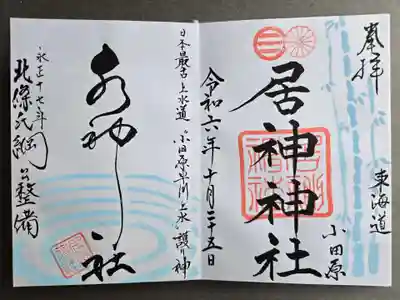 奉拝
東海道
小田原
居神神社
令和六年十月二十五日
日本最古上水道 小田原早川上水護り神
水神社
永正十七年
北條氏綱公整備